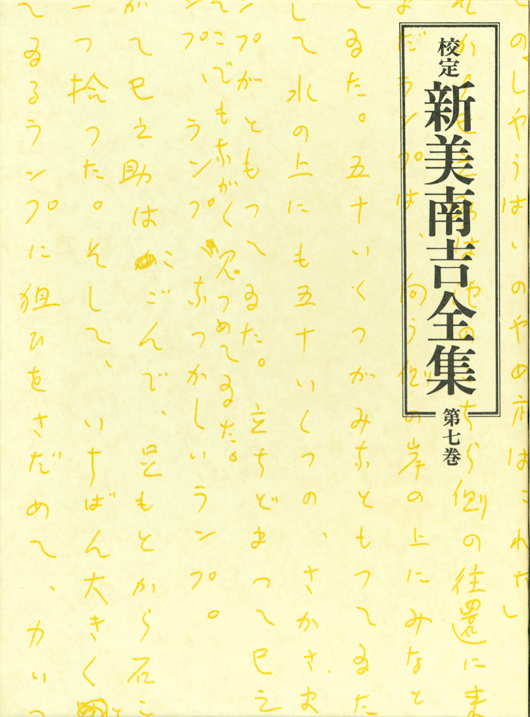 校定
新美南吉全集
第七巻
のしやうばいのやめ方はこれだ
ちら側の往還に来
だランプは、向う側の岸の上にみなと
てゐた。五十いくつがみなともつてゐた
して水の上にも五十いくつの、さかさま
ンプがともつてゐた。立ちどまつて巳之
こでもながく見つめてゐた。
ンプ、ランプ、なつかしいランプ。
がて巳之助はかごんで、足もとから石こ
一つ捨つた。そして、いちばん大きくと
てゐるランプに狙ひをさだめて、力いつ